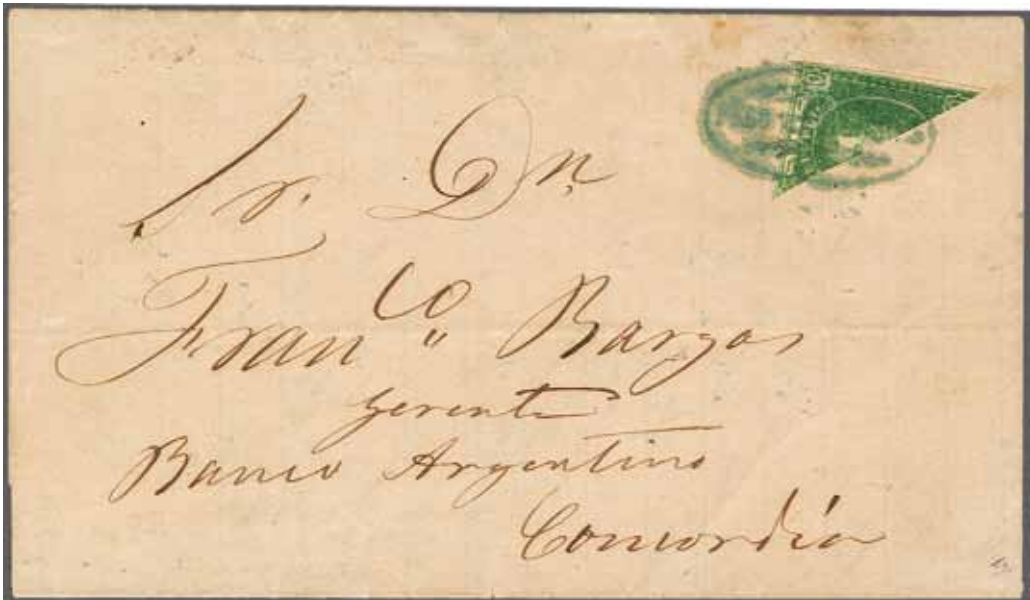 Sr. Dn.
Franco Bargas
Gerente
Banco Argentino
Concordia
10